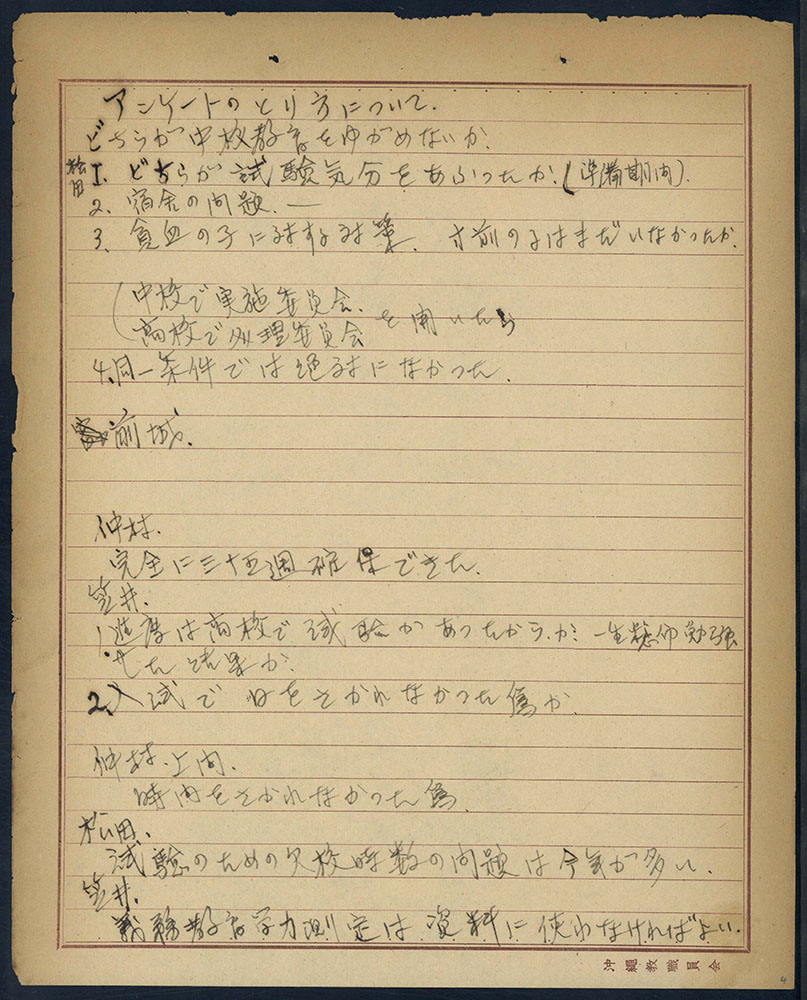 アンケートのとり方について.
どちらが中校教育をゆがめないか.
松田
1. どちらが試験気分をあふったか.(準備期間).
2. 宿舎の問題. —
3. 貧血の子に対する対策. 寸前の子はまだいなかったか.
中校で実施委員会.
高校で処理委員会 を開いたら
4. 同一条件では絶対になかった.
前城.
仲村.
完全に三十五週確保できた.
笠井.
1 進度は高校で試験があったからか. 一生懸命勉強
した結果か.
2. 入試で日をさかれなかった為か.
仲村. 上内.
時間をさかれなかった為.
松田.
試験のための欠校時数の問題は今年が多い.
笠井.
義務教育学力測定は資料に使わなければよい.
沖繩教職員会
4